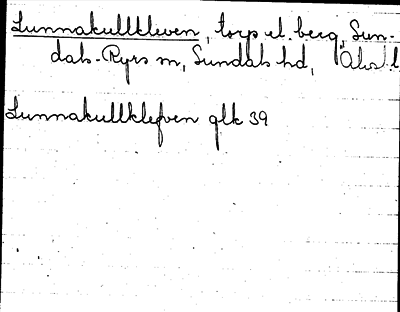 Lunnakullkleven, torp el. berg, Sun-
dals-Ryrs sn, Sundals hd, Älvs. l
Lunnakullklefven glk 39